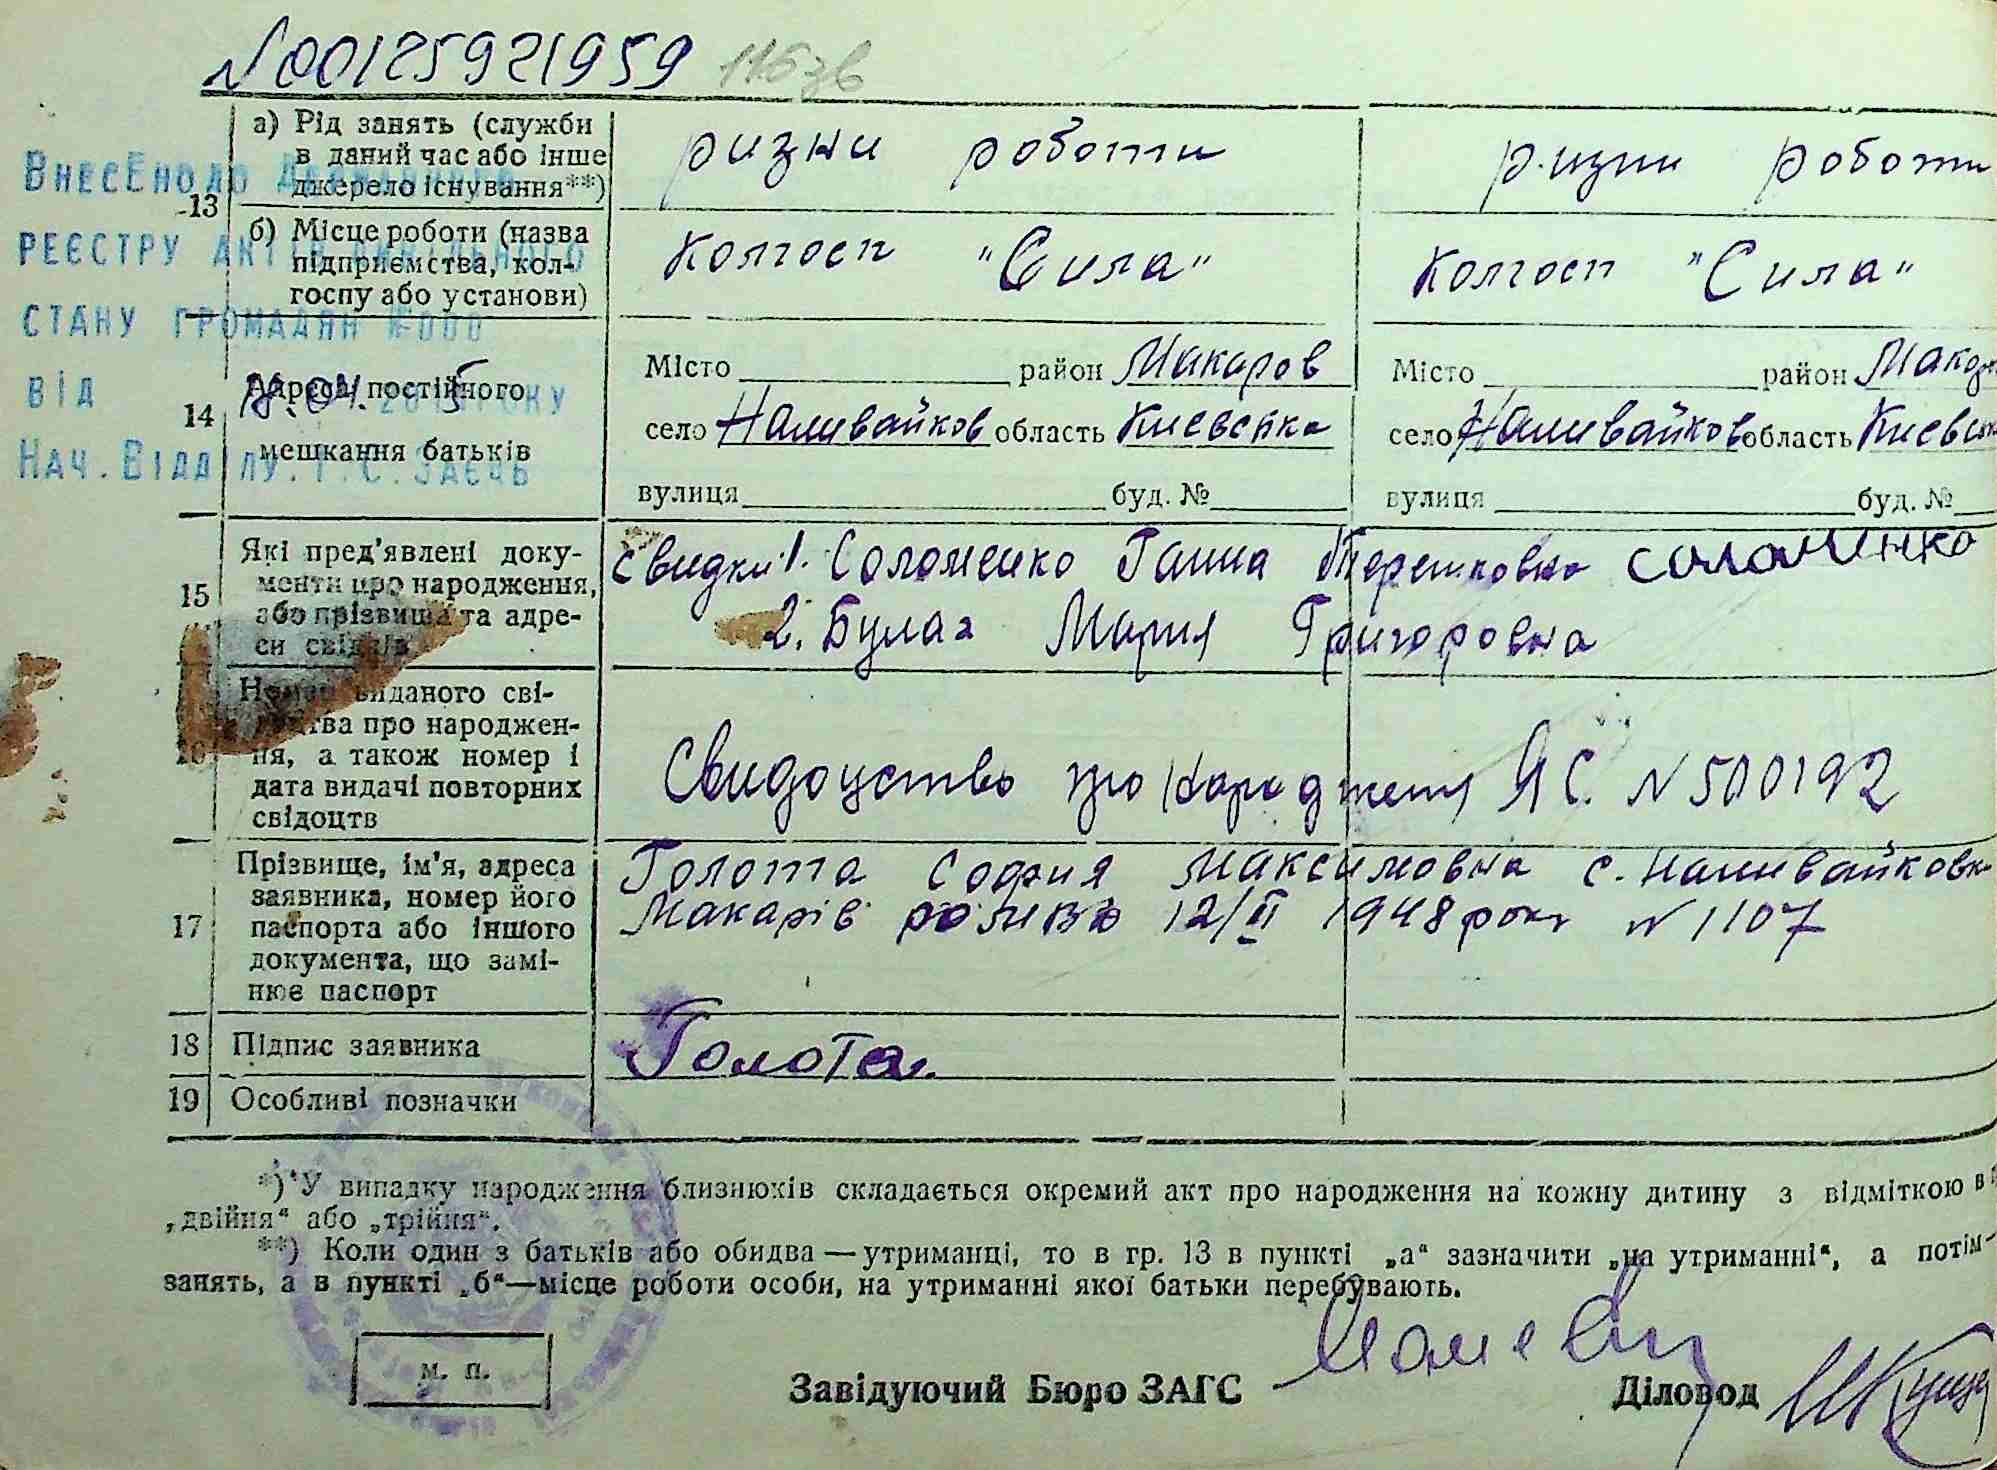 N00125921959 116зв
а) Рід занять (служби
в даний час або інше
джерело існування**)
ризни роботи
ризни роботи
13
б) Місце роботи (назва
підприємства, кол-
госпу або установи)
Колгосп "Сила"
Колгосп "Сила"
Внесено до Державного
реєстру актів цивільного
стану громадян
від 18.04. року
Нач. Відділу. Г.С. Заєць
14
Адреса постійного
мешкання батьків
Місто район Макаров
село Наливайков область Киевська
вулиця буд. №
Місто район
село Наливайков область
вулиця буд. №
15
Які пред'явлені доку-
менти про народження,
або прізвища та адре-
си свідків
Свидки 1. Соломенко Ганна Терешковна Соломенко
2. Булах Мария Григоровна
16
Номер виданого сві-
доцтва про народжен-
ня, а також номер і
дата видачі повторних
свідоцтв
Свидоцтво про народженя ЯС. N 500192
17
Прізвище, ім'я, адреса
заявника, номер його
паспорта або іншого
документа, що замі-
нює паспорт
Голота София Максимовна с. Наливайковка
Макарів 12/ІІ 1948 року N 1107
18 Підпис заявника
Голота.
19 Особливі позначки
*) У випадку народження близнюків складається окремий акт про народження на кожну дитину з відміткою
„двійня“ або „трійня“.
**) Коли один з батьків або обидва—утриманці, то в гр. 13 в пункті „а“ зазначити „на утриманні“, а потім
занять, а в пункті „б“—місце роботи особи, на утриманні якої батьки перебувають.
м. п.
Завідуючий Бюро ЗАГС
Діловод